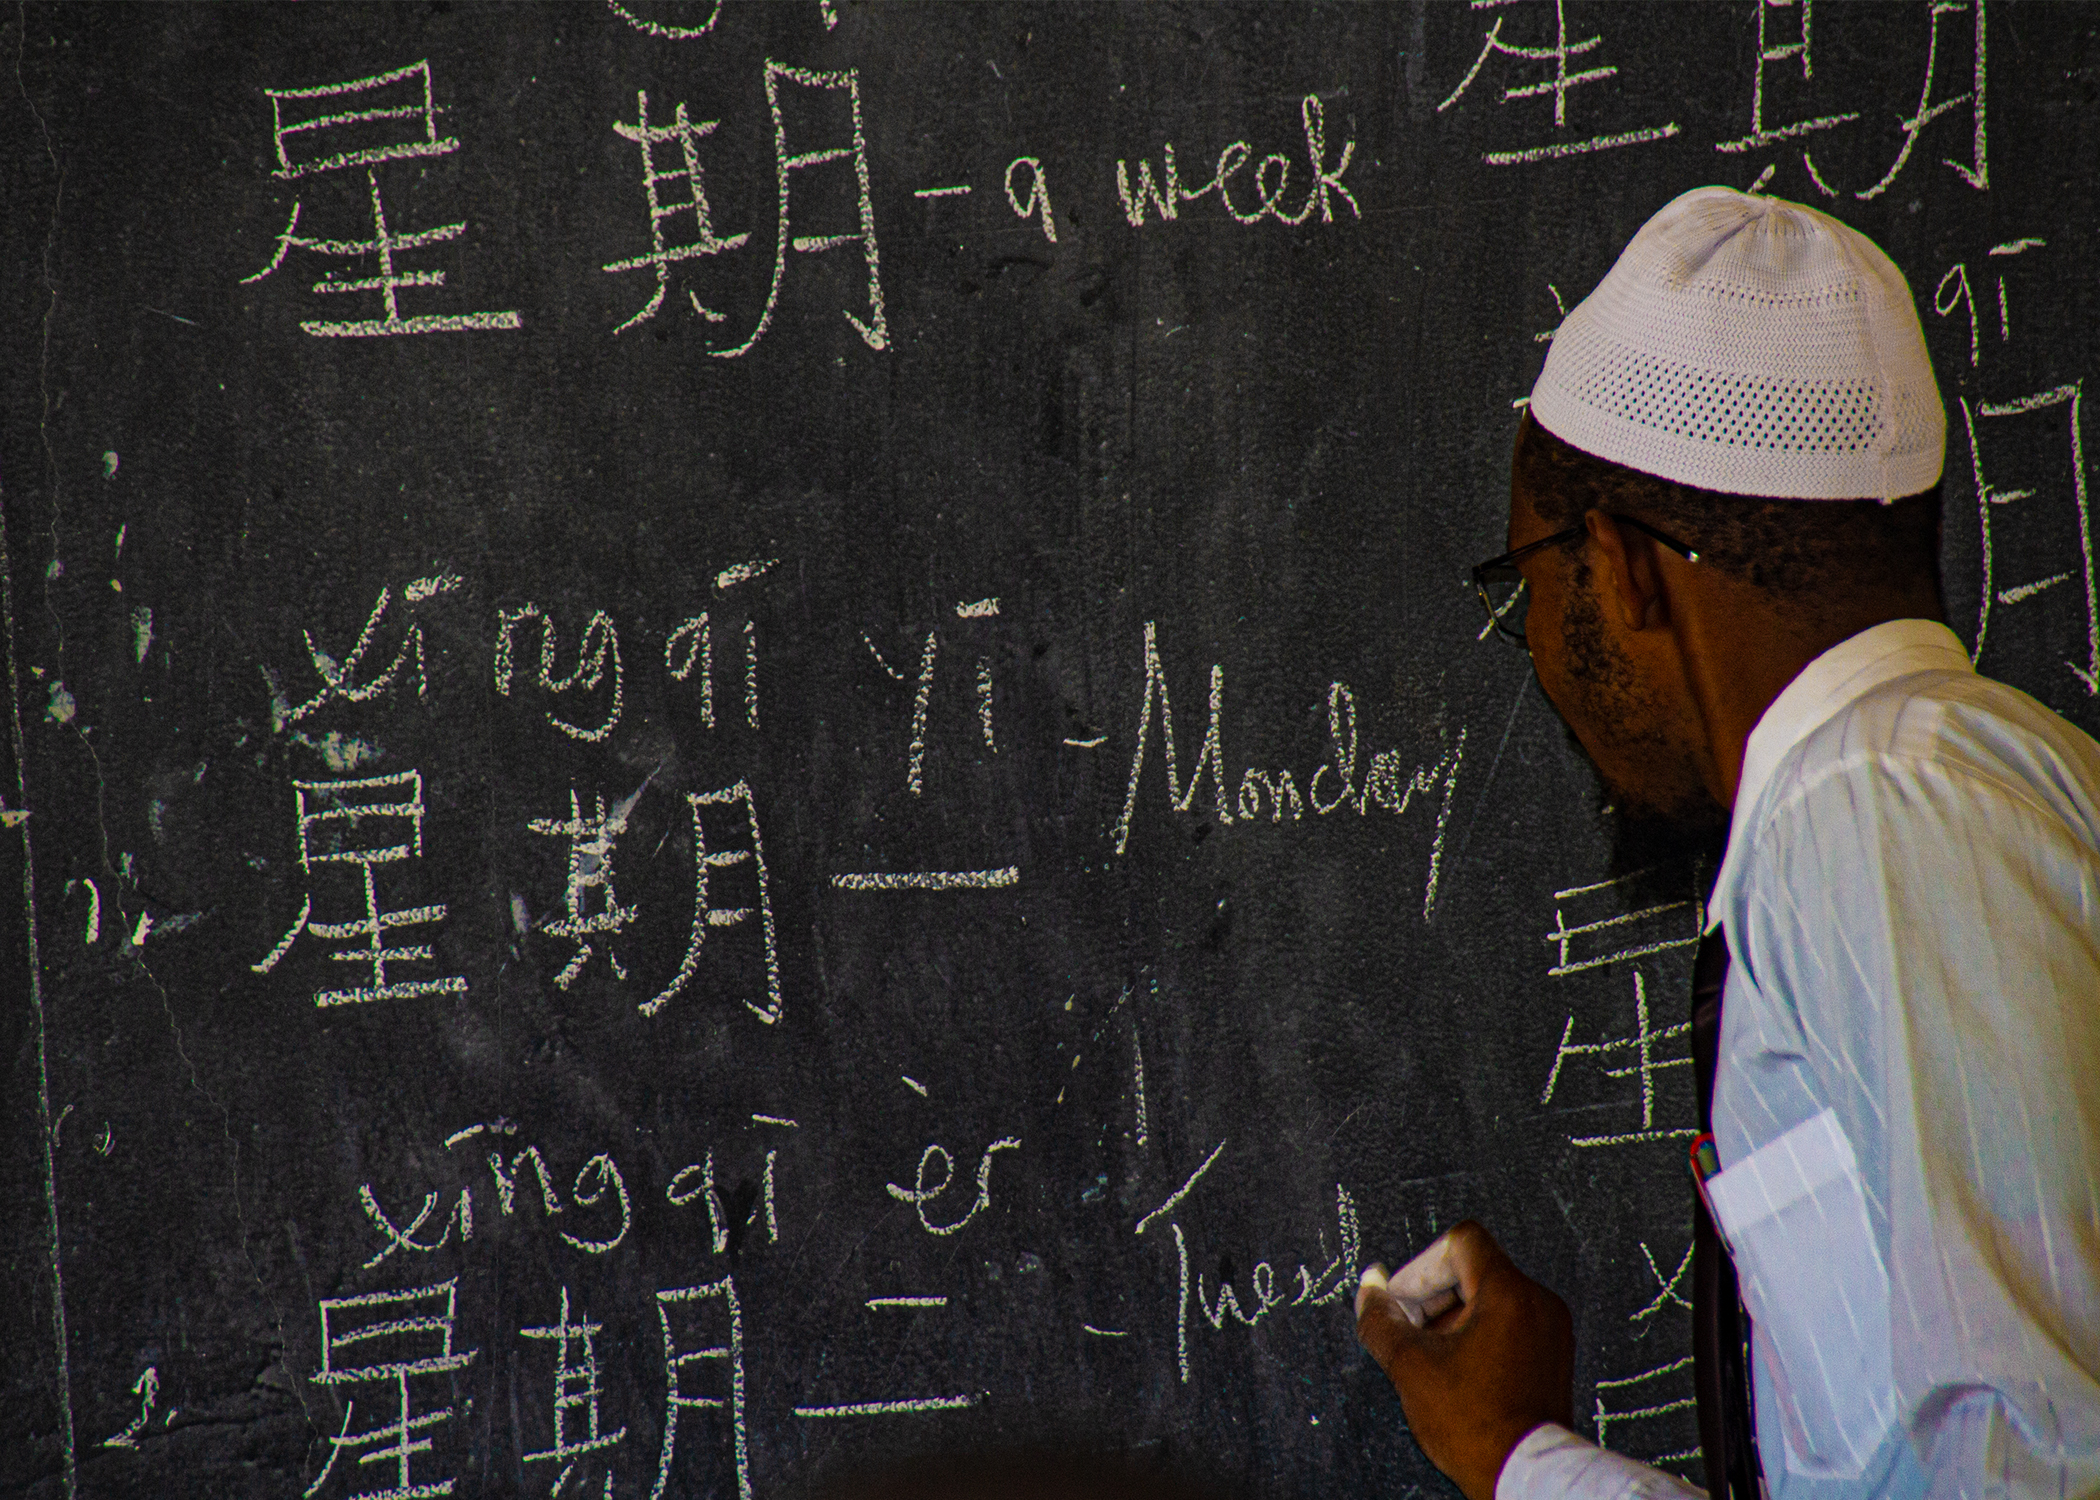 星期 - a week
xīng qī yī - Monday
1. 星期一
xīng qī èr - Tuesd
2. 星期二
星期
qī
月
星
x